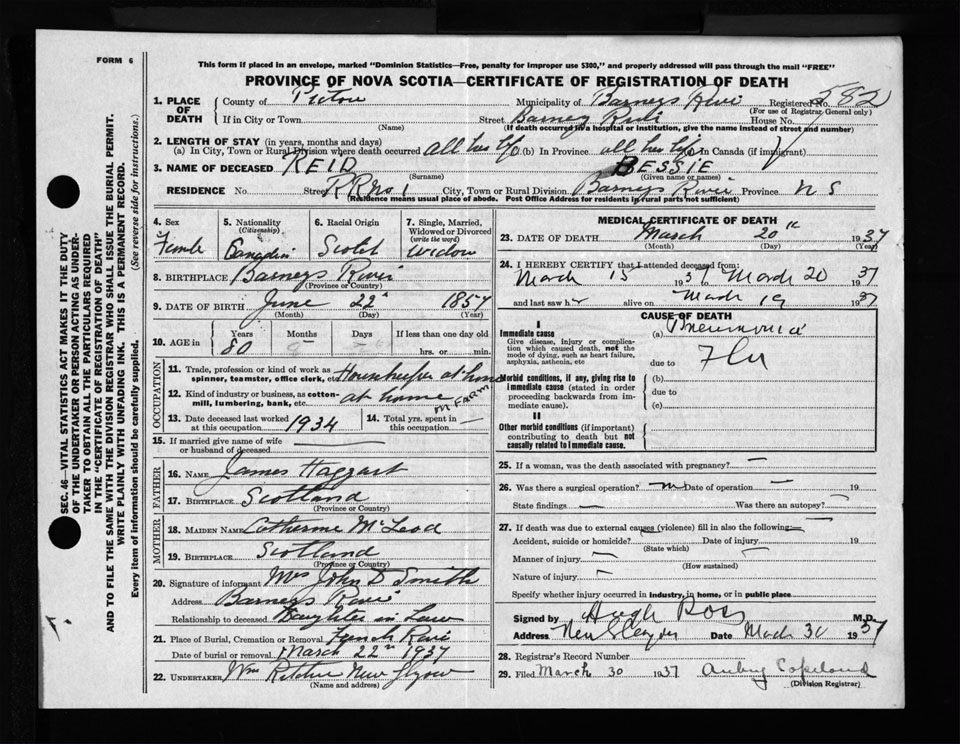 FORM 6
This form if placed in an envelope, marked "Dominion Statistics—Free, penalty for improper use $300," and properly addressed will pass through the mail "FREE"
PROVINCE OF NOVA SCOTIA—CERTIFICATE OF REGISTRATION OF DEATH
1. PLACE OF DEATH
County of Pictou Municipality of Barneys River Registered No. 582
(For use of Registrar General only)
If in City or Town (Name) Street Barney River House No.
(If death occurred in a hospital or institution, give the name instead of street and number)
2. LENGTH OF STAY (in years, months and days)
(a) In City, Town or Rural Division where death occurred all her life (b) In Province all her life In Canada (if immigrant)
3. NAME OF DECEASED REID BESSIE
(Surname) (Given name or names)
RESIDENCE No. Street RR No 1 City, Town or Rural Division Barneys River Province N S
(Residence means usual place of abode. Post Office Address for residents in rural parts not sufficient)
4. Sex 5. Nationality (Citizenship) 6. Racial Origin 7. Single, Married, Widowed or Divorced (write the word)
Female Canadian Scotch Widow
8. BIRTHPLACE Barneys River
(Province or Country)
9. DATE OF BIRTH June 22 1857
(Month) (Day) (Year)
10. AGE in Years Months Days If less than one day old
80 hrs. or min.
OCCUPATION
11. Trade, profession or kind of work as spinner, teamster, office clerk, etc. Housekeeper at home
12. Kind of industry or business, as cotton-mill, lumbering, bank, etc. at home
FARM
13. Date deceased last worked at this occupation 1934 14. Total yrs. spent in this occupation —
15. If married give name of wife or husband of deceased
FATHER
16. NAME James Haggart
17. BIRTHPLACE Scotland
(Province or Country)
MOTHER
18. MAIDEN NAME Catherine McLeod
19. BIRTHPLACE Scotland
(Province or Country)
20. Signature of informant Mrs John D Smith
Address Barneys River
Relationship to deceased Daughter in Law
21. Place of Burial, Cremation or Removal
Date of burial or removal March 22 1937
22. UNDERTAKER Wm
(Name and address)
MEDICAL CERTIFICATE OF DEATH
23. DATE OF DEATH March 20th 1937
(Month) (Day) (Year)
24. I HEREBY CERTIFY that I attended deceased from:
March 15 1937 to March 20 1937
and last saw her alive on March 19 1937
CAUSE OF DEATH
I
Immediate cause (a) Pneumonia
Give disease, injury or complication which caused death, not the mode of dying, such as heart failure, asphyxia, asthenia, etc
due to Flu
Morbid conditions, if any, giving rise to immediate cause (stated in order proceeding backwards from immediate cause). (b)
due to
(c)
II
Other morbid conditions (if important) contributing to death but not causally related to immediate cause.
25. If a woman, was the death associated with pregnancy? —
26. Was there a surgical operation? no Date of operation — 19
State findings — Was there an autopsy? —
27. If death was due to external causes (violence) fill in also the following:—
Accident, suicide or homicide? Date of injury 19
(State which)
Manner of injury
(How sustained)
Nature of injury
Specify whether injury occurred in industry, in home, or in public place
Signed by Hugh Ross M.D.
Address Date March 30 1937
28. Registrar's Record Number
29. Filed March 30 1937 Aubrey Copeland
(Division Registrar)
SEC. 46—VITAL STATISTICS ACT MAKES IT THE DUTY OF THE UNDERTAKER OR PERSON ACTING AS UNDERTAKER TO OBTAIN ALL THE PARTICULARS REQUIRED IN THE "CERTIFICATE OF REGISTRATION OF DEATH" AND TO FILE THE SAME WITH THE DIVISION REGISTRAR WHO SHALL ISSUE THE BURIAL PERMIT.
WRITE PLAINLY WITH UNFADING INK. THIS IS A PERMANENT RECORD.
Every item of information should be carefully supplied. (See reverse side for instructions.)